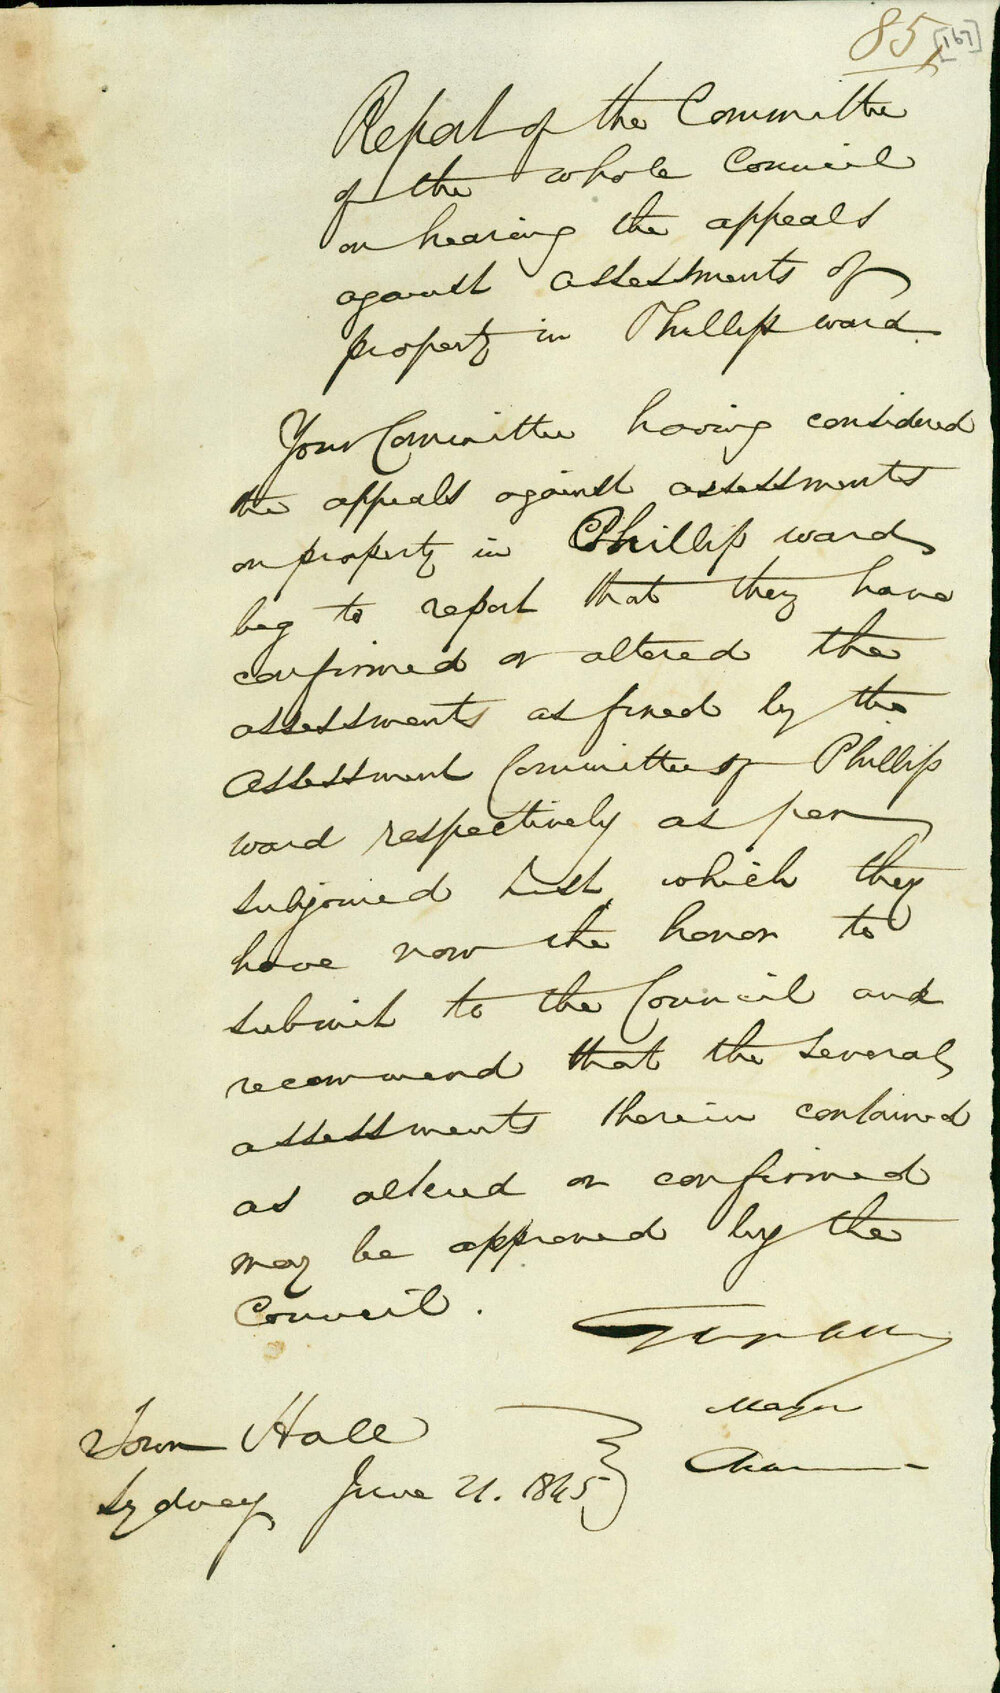 85
[167]
Report of the Committee
of the whole Council
on hearing the appeals
against assessments of
property in Phillip ward
Your Committee having considered
the appeals against assessments
on property in Phillip ward
beg to report that they have
confirmed or altered the
assessments as fixed by the
Assessment Committee of Phillip
ward respectively as per
subjoined List, which they
have now the honor to
submit to the Council and
recommend that the several
assessments therein contained
as altered or confirmed
may be approved by the
Council.
Mayor
Town Hall
Chairman
Sydney June 21. 1845